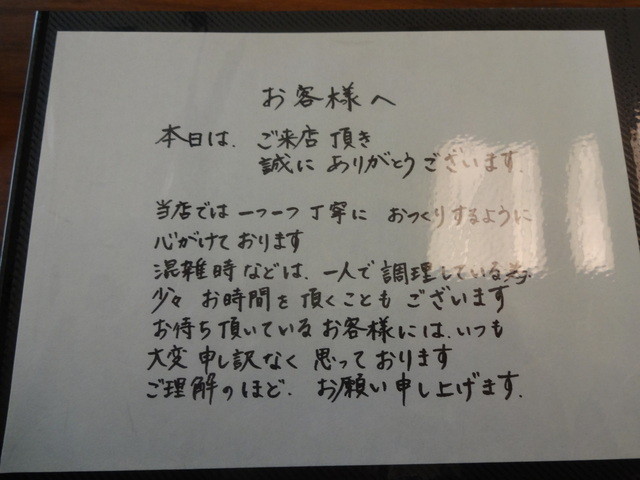 お客様へ
本日は、ご来店頂き
誠に ありがとうございます.
当店では 一つ一つ 丁寧に おつくりするように
心がけて おります
混雑時などは、一人で 調理している為、
少々 お時間を 頂くことも ございます
お待ち頂いている お客様には、いつも
大変 申し訳なく 思って おります
ご理解のほど、 お願い申し上げます.